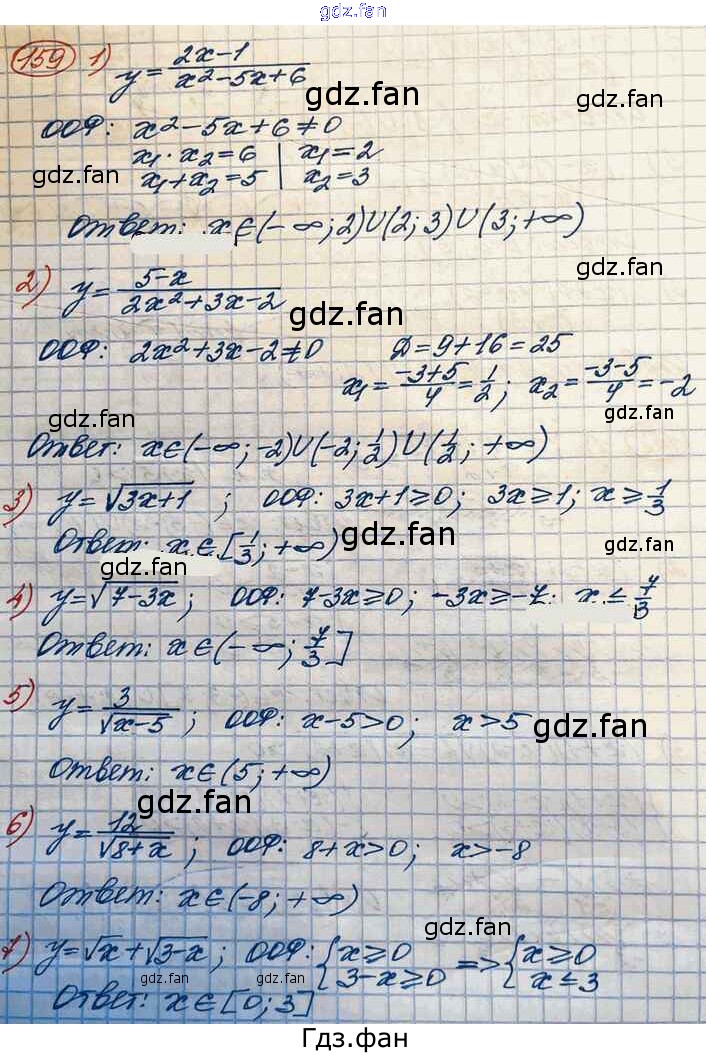 gdz.fan
159 1) y = (2x-1)/(x²-5x+6)
gdz.fan
ООФ: x²-5x+6≠0
gdz.fan
x₁·x₂=6 | x₁=2
gdz.fan
x₁+x₂=5 | x₂=3
Ответ: x∈(-∞;2)∪(2;3)∪(3;+∞)
gdz.fan
2) y = (5-x)/(2x²+3x-2)
gdz.fan
ООФ: 2x²+3x-2≠0 Д=9+16=25
x₁=(-3+5)/4=1/2; x₂=(-3-5)/4=-2
gdz.fan
gdz.fan
Ответ: x∈(-∞;-2)∪(-2;1/2)∪(1/2;+∞)
3) y=√(3x+1); ООФ: 3x+1≥0; 3x≥1; x≥1/3
Ответ: x∈[1/3;+∞)
gdz.fan
4) y=√(7-3x); ООФ: 7-3x≥0; -3x≥-7; x≤7/3
Ответ: x∈(-∞;7/3]
5) y=3/√(x-5); ООФ: x-5>0; x>5
gdz.fan
Ответ: x∈(5;+∞)
gdz.fan
6) y=12/√(8+x); ООФ: 8+x>0; x>-8
Ответ: x∈(-8;+∞)
gdz.fan
7) y=√x+√(3-x); ООФ: {x≥0 3-x≥0 => {x≥0 x≤3
gdz.fan
gdz.fan
gdz.fan
Ответ: x∈[0;3]
Гдз.фан